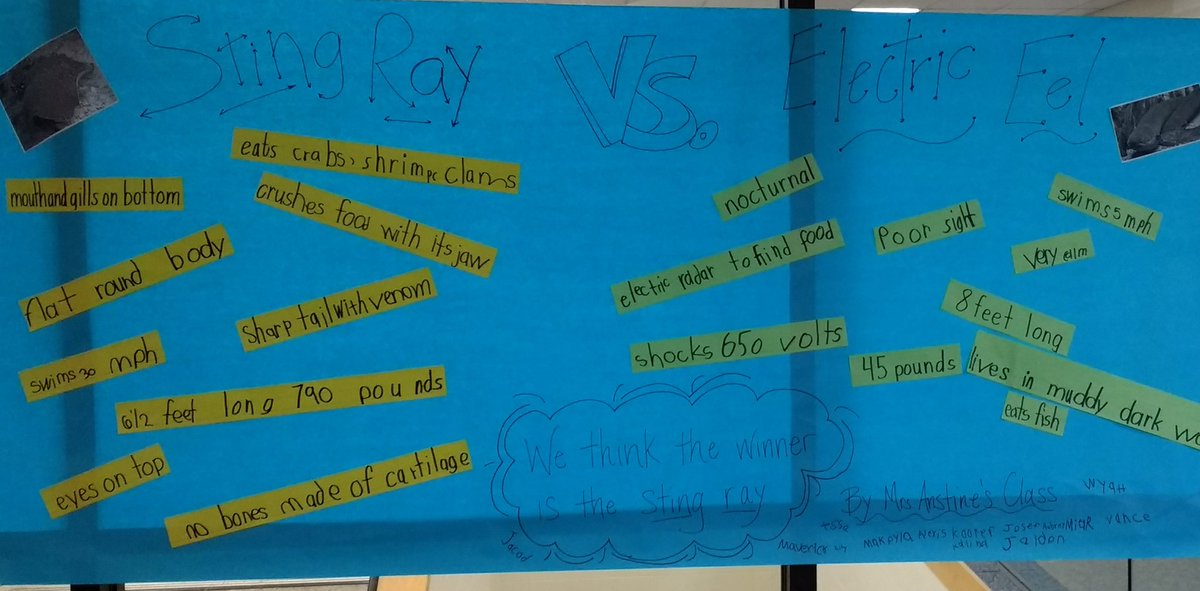 Sting Ray Vs. Electric Eel
eats crabs, shrimp, clams
mouth and gills on bottom
crushes food with its jaw
flat round body
sharp tail with venom
swims 30 mph
6 1/2 feet long 790 pounds
eyes on top
no bones made of cartilage
nocturnal
swims 5 mph
Poor sight
electric radar to find food
very
8 feet long
shocks 650 volts
45 pounds
lives in muddy dark
eats fish
We think the winner
is the Sting ray
By Mrs Anstine's Class
Wyatt
Tessa
Maverick
Makayla Alexis Kooper
Vance
Jaidon
Jacob